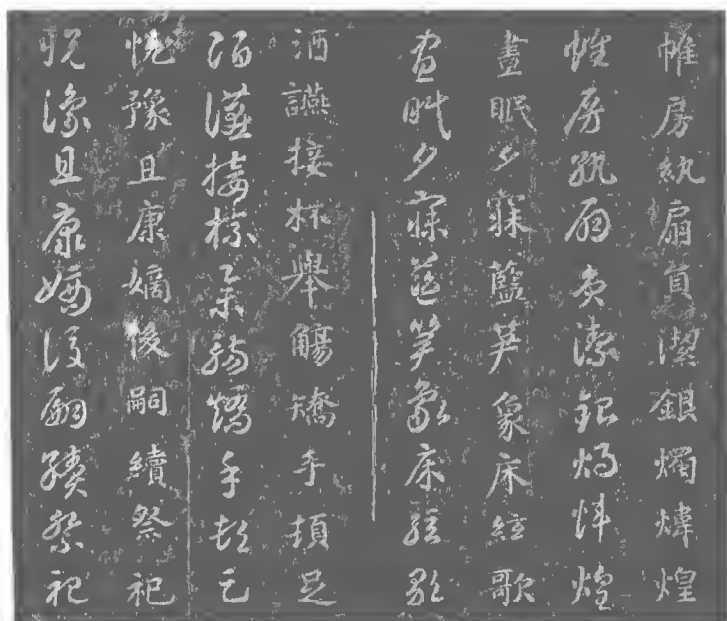 帷房紈扇員潔銀燭煒煌
帷房紈扇員潔銀燭煒煌
晝眠夕寐藍笋象床絃歌
晝眠夕寐藍笋象床絃歌
酒讌接杯舉觴矯手頓足
酒讌接杯舉觴矯手頓足
悅豫且康嫡後嗣續祭祀
悅豫且康嫡後嗣續祭祀